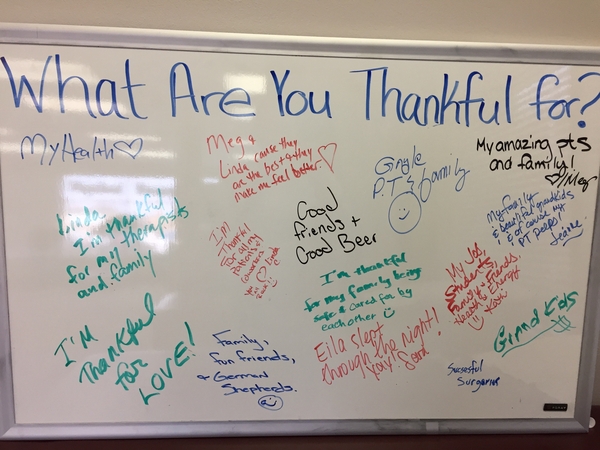 What Are You Thankful for?
My Health
Meg +
Linda, cause they
are the best + they
make me feel better.
Gingle
P.T's & family
My amazing pts
and family!
Meg
Linda
I'm thankful
for my therapists
and family
I'm
Thankful
for all my
patients &
coworkers
Linda
Good
friends +
Good Beer
My family
& beautiful grandkids
& of course my
PT peeps!
Jeanne
I'm thankful
for my family being
safe & cared for by
each other
My Job
Students,
Family & friends.
Health & Energy
Kath
Grand Kids
I'M
Thankful
for
LOVE!
Family,
fun friends,
& German
Shepherds.
Eila slept
through the night!
Successful
Surgeries